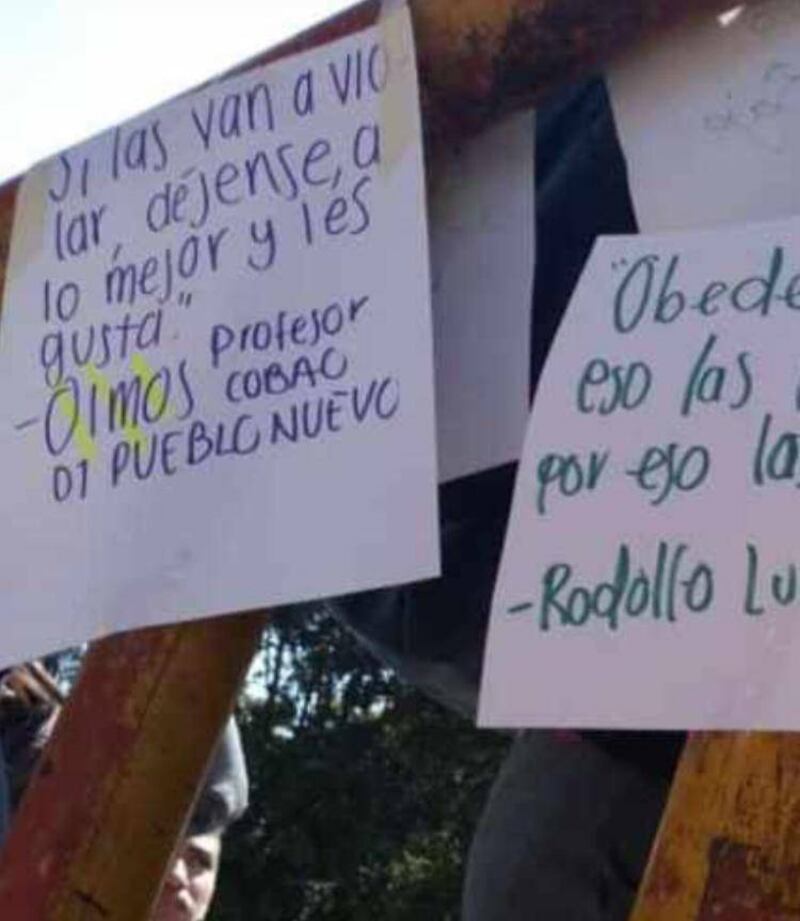 Si las van a vio-
lar, déjense, a
lo mejor y les
gusta."
-Olmos profesor
COBAO
01 PUEBLO NUEVO
"Obede
eso las
por eso la
-Rodolfo Lu